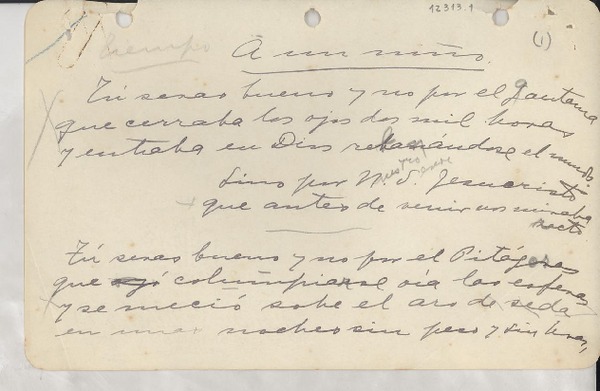 12313.1
(1)
Tiempo A un niño.
Tú seras bueno y no por el Gautama
que cerraba los ojos dos mil horas
y entraba en Dios el mundo.
Sino por N. S. Jesucristo
nuestro
que antes de venir nos miraba
recto
Tú seras bueno y no por el Pitágoras
que columpiarse oía las esferas
y se meció sobe el aro de seda
en unas noches sin peso y sin horas,